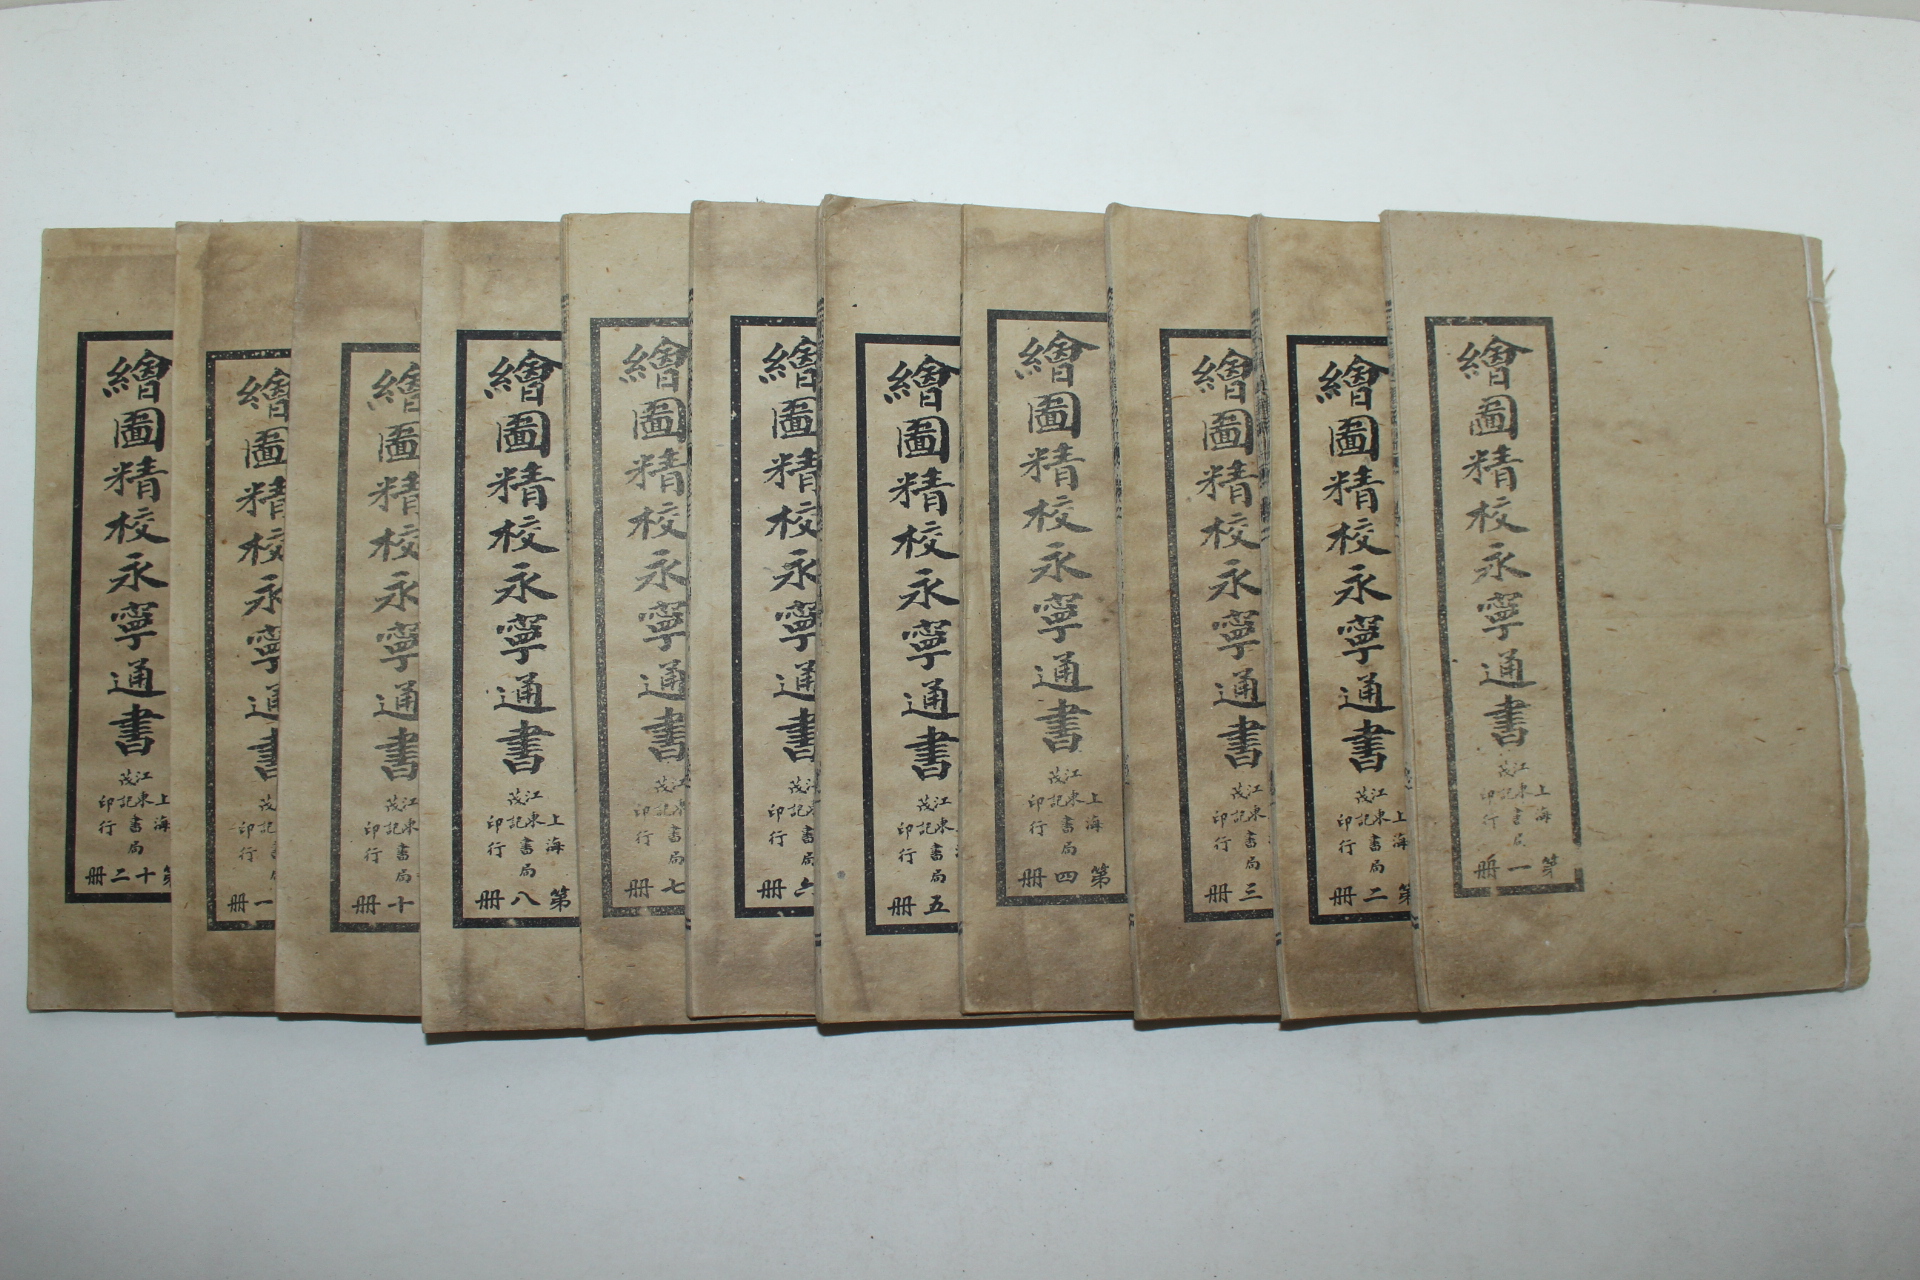 繪圖精校永寧通書
上海
江東書局
茂記
印行
第一冊
繪圖精校永寧通書
上海
江東書局
茂記
印行
第二冊
繪圖精校永寧通書
江東書局
茂記
印行
三冊
繪圖精校永寧通書
上海
江東書局
茂記
印行
第四冊
繪圖精校永寧通書
江東書局
茂記
印行
五冊
繪圖精校永寧通書
江東書局
茂記
印行
六冊
繪圖精校永寧通書
江東書局
茂記
印行
七冊
繪圖精校永寧通書
上海
江東書局
茂記
印行
第八冊
繪圖精校永寧通書
江東書局
茂記
印行
十冊
繪圖精校永寧通書
茂記
印行
一冊
繪圖精校永寧通書
上海
江東書局
茂記
印行
第十二冊